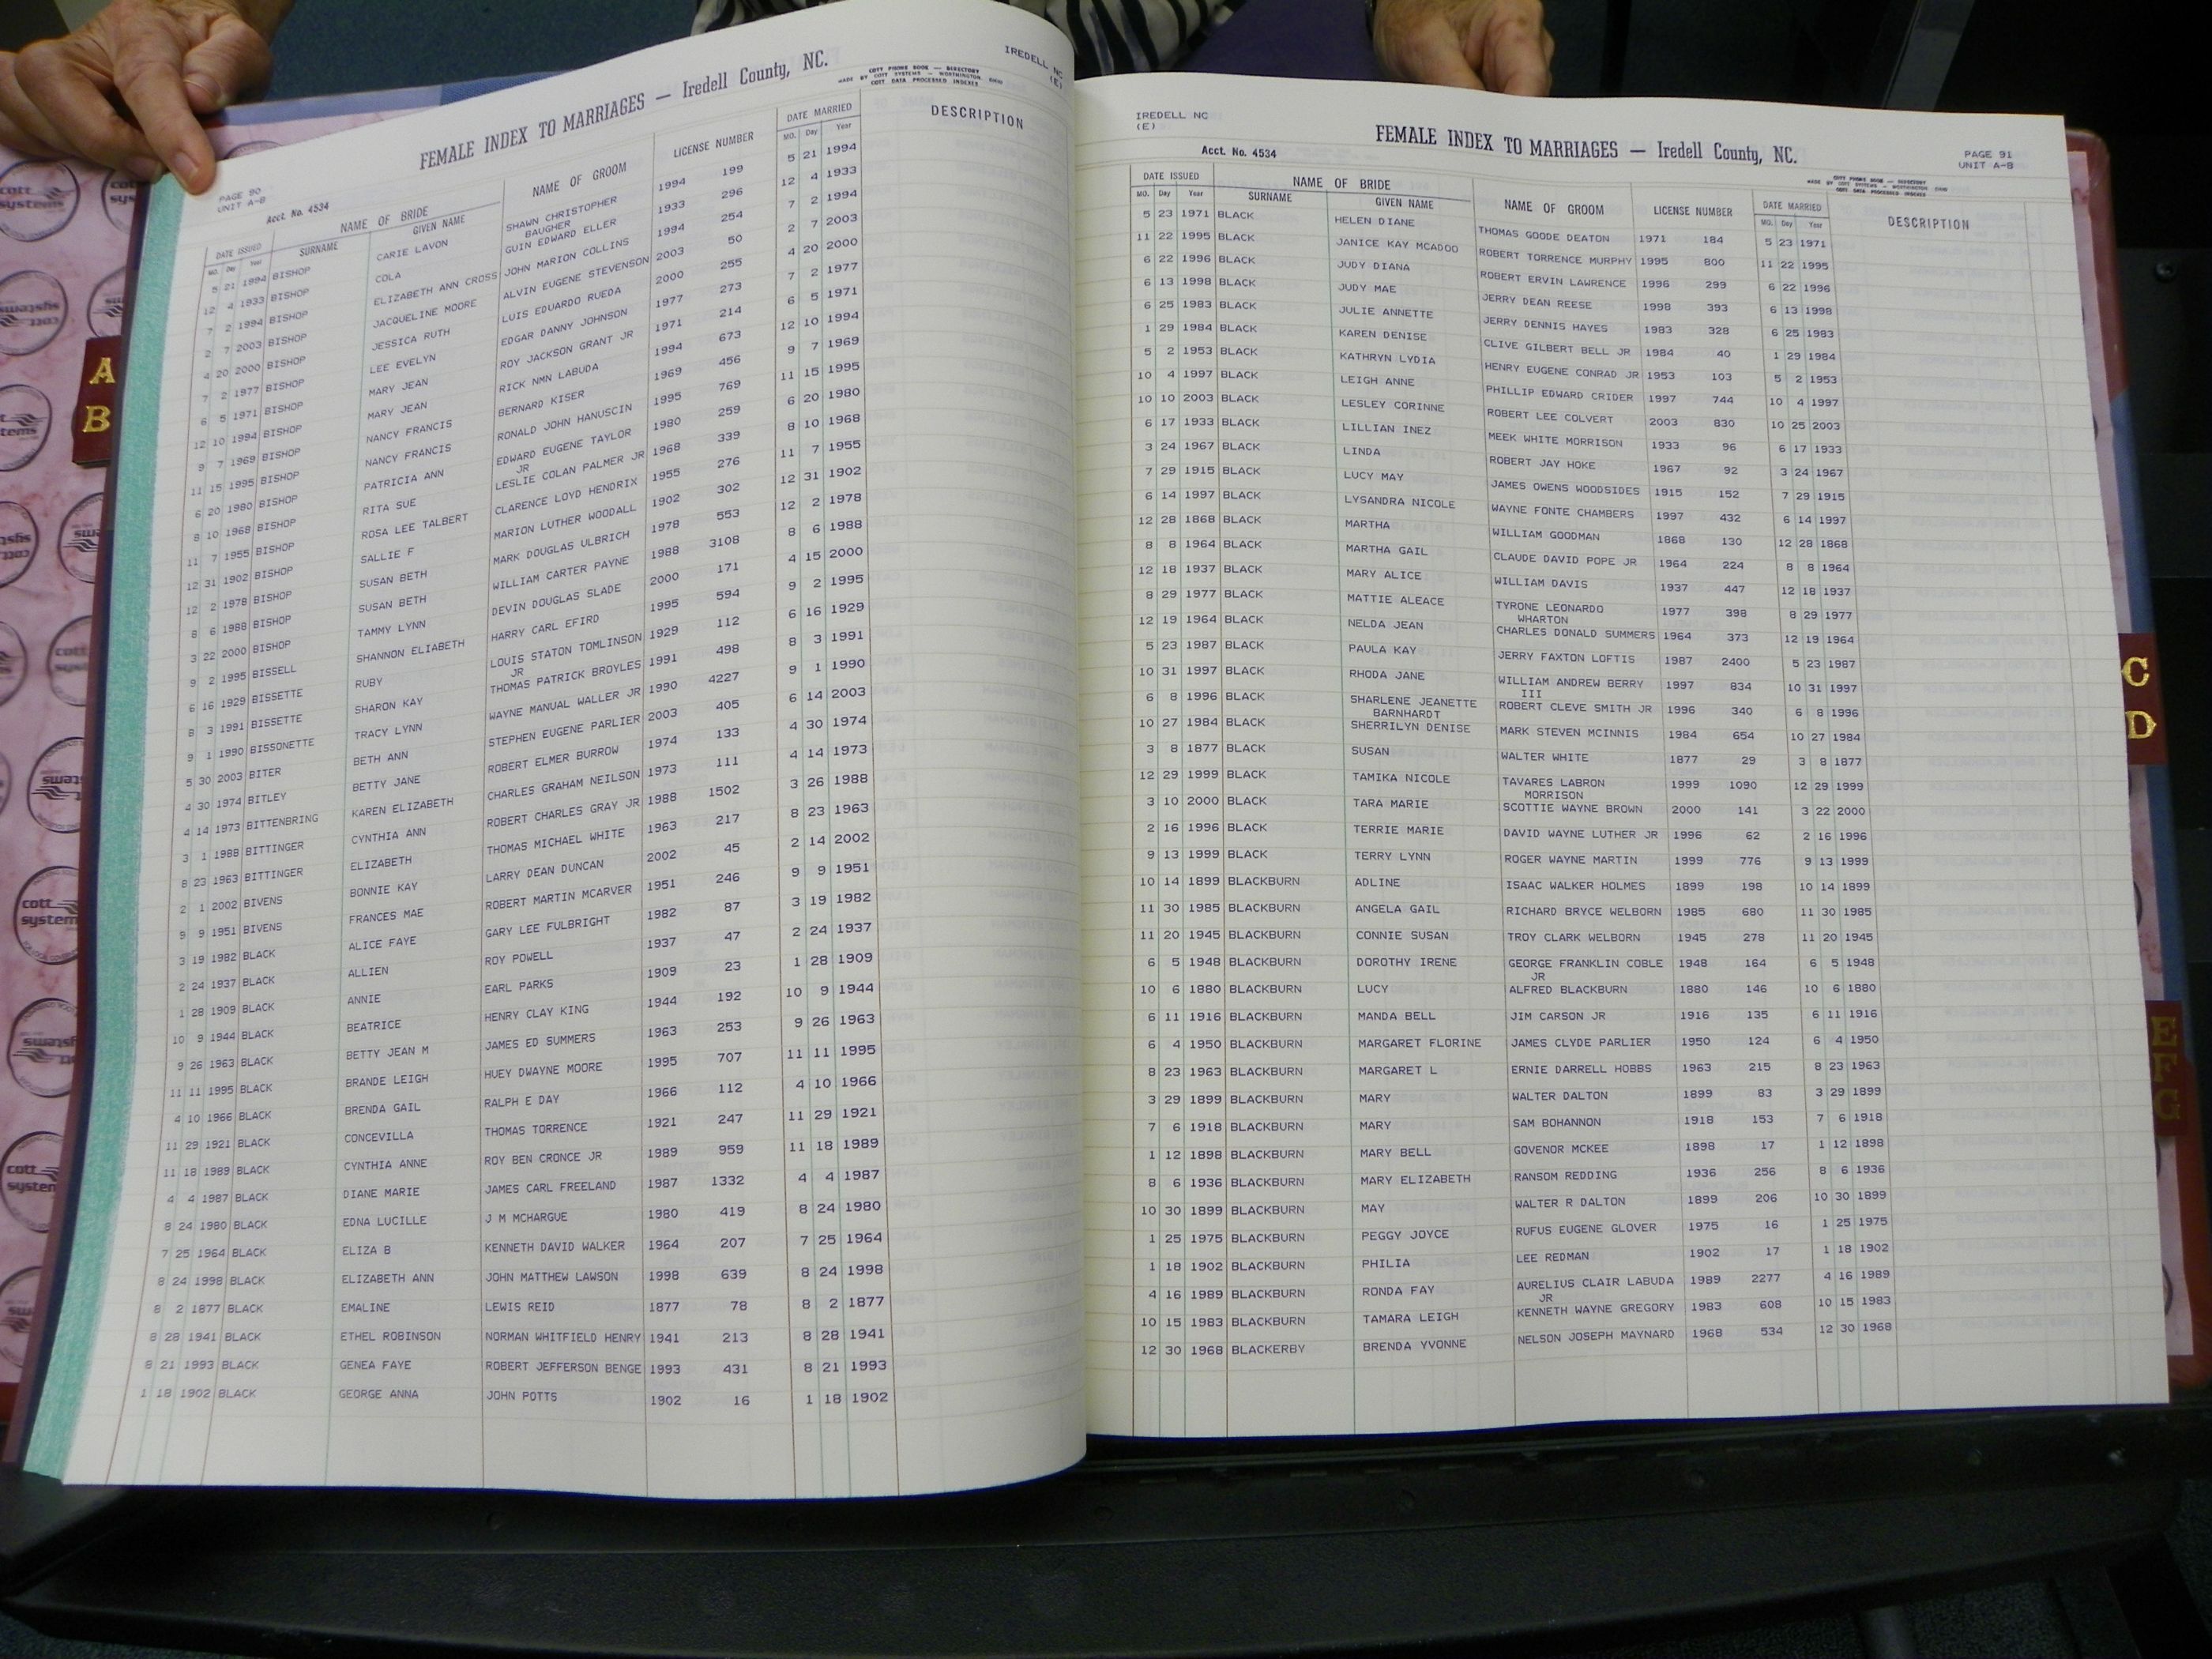 FEMALE INDEX TO MARRIAGES — Iredell County, NC.
COTT PHONE BOOK — DIRECTORY
MADE BY COTT SYSTEMS — WORTHINGTON OHIO
COTT DATA PROCESSED INDEXER
IREDELL NC
(E)
PAGE 90
UNIT A-B
Acct. No. 4534
DATE ISSUED NAME OF BRIDE NAME OF GROOM LICENSE NUMBER DATE MARRIED DESCRIPTION
MO. Day Year SURNAME GIVEN NAME MO. Day Year
5 21 1994 BISHOP CARIE LAVON SHAWN CHRISTOPHER 1994 199 5 21 1994
BAUGHER
12 4 1933 BISHOP COLA GUIN EDWARD ELLER 1933 296 12 4 1933
7 2 1994 BISHOP ELIZABETH ANN CROSS JOHN MARION COLLINS 1994 254 7 2 1994
2 7 2003 BISHOP JACQUELINE MOORE ALVIN EUGENE STEVENSON 2003 50 2 7 2003
4 20 2000 BISHOP JESSICA RUTH LUIS EDUARDO RUEDA 2000 255 4 20 2000
7 2 1977 BISHOP LEE EVELYN EDGAR DANNY JOHNSON 1977 273 7 2 1977
6 5 1971 BISHOP MARY JEAN ROY JACKSON GRANT JR 1971 214 6 5 1971
12 10 1994 BISHOP MARY JEAN RICK NMN LABUDA 1994 673 12 10 1994
9 7 1969 BISHOP NANCY FRANCIS BERNARD KISER 1969 456 9 7 1969
11 15 1995 BISHOP NANCY FRANCIS RONALD JOHN HANUSCIN 1995 769 11 15 1995
6 20 1980 BISHOP PATRICIA ANN EDWARD EUGENE TAYLOR 1980 259 6 20 1980
JR
8 10 1968 BISHOP RITA SUE LESLIE COLAN PALMER JR 1968 339 8 10 1968
11 7 1955 BISHOP ROSA LEE TALBERT CLARENCE LOYD HENDRIX 1955 276 11 7 1955
12 31 1902 BISHOP SALLIE F MARION LUTHER WOODALL 1902 302 12 31 1902
12 2 1978 BISHOP SUSAN BETH MARK DOUGLAS ULBRICH 1978 553 12 2 1978
8 6 1988 BISHOP SUSAN BETH WILLIAM CARTER PAYNE 1988 3108 8 6 1988
3 22 2000 BISHOP TAMMY LYNN DEVIN DOUGLAS SLADE 2000 171 4 15 2000
9 2 1995 BISSELL SHANNON ELIABETH HARRY CARL EFIRD 1995 594 9 2 1995
6 16 1929 BISSETTE RUBY LOUIS STATON TOMLINSON 1929 112 6 16 1929
JR
8 3 1991 BISSETTE SHARON KAY THOMAS PATRICK BROYLES 1991 498 8 3 1991
9 1 1990 BISSONETTE TRACY LYNN WAYNE MANUAL WALLER JR 1990 4227 9 1 1990
5 30 2003 BITER BETH ANN STEPHEN EUGENE PARLIER 2003 405 6 14 2003
4 30 1974 BITLEY BETTY JANE ROBERT ELMER BURROW 1974 133 4 30 1974
4 14 1973 BITTENBRING KAREN ELIZABETH CHARLES GRAHAM NEILSON 1973 111 4 14 1973
3 1 1988 BITTINGER CYNTHIA ANN ROBERT CHARLES GRAY JR 1988 1502 3 26 1988
8 23 1963 BITTINGER ELIZABETH THOMAS MICHAEL WHITE 1963 217 8 23 1963
2 1 2002 BIVENS BONNIE KAY LARRY DEAN DUNCAN 2002 45 2 14 2002
9 9 1951 BIVENS FRANCES MAE ROBERT MARTIN MCARVER 1951 246 9 9 1951
3 19 1982 BLACK ALICE FAYE GARY LEE FULBRIGHT 1982 87 3 19 1982
2 24 1937 BLACK ALLIEN ROY POWELL 1937 47 2 24 1937
1 28 1909 BLACK ANNIE EARL PARKS 1909 23 1 28 1909
10 9 1944 BLACK BEATRICE HENRY CLAY KING 1944 192 10 9 1944
9 26 1963 BLACK BETTY JEAN M JAMES ED SUMMERS 1963 253 9 26 1963
11 11 1995 BLACK BRANDE LEIGH HUEY DWAYNE MOORE 1995 707 11 11 1995
4 10 1966 BLACK BRENDA GAIL RALPH E DAY 1966 112 4 10 1966
11 29 1921 BLACK CONCEVILLA THOMAS TORRENCE 1921 247 11 29 1921
11 18 1989 BLACK CYNTHIA ANNE ROY BEN CRONCE JR 1989 959 11 18 1989
4 4 1987 BLACK DIANE MARIE JAMES CARL FREELAND 1987 1332 4 4 1987
8 24 1980 BLACK EDNA LUCILLE J M MCHARGUE 1980 419 8 24 1980
7 25 1964 BLACK ELIZA B KENNETH DAVID WALKER 1964 207 7 25 1964
8 24 1998 BLACK ELIZABETH ANN JOHN MATTHEW LAWSON 1998 639 8 24 1998
8 2 1877 BLACK EMALINE LEWIS REID 1877 78 8 2 1877
8 28 1941 BLACK ETHEL ROBINSON NORMAN WHITFIELD HENRY 1941 213 8 28 1941
8 21 1993 BLACK GENEA FAYE ROBERT JEFFERSON BENGE 1993 431 8 21 1993
1 18 1902 BLACK GEORGE ANNA JOHN POTTS 1902 16 1 18 1902
IREDELL NC
(E)
Acct. No. 4534
FEMALE INDEX TO MARRIAGES — Iredell County, NC.
PAGE 91
UNIT A-B
COTT PHONE BOOK — DIRECTORY
MADE BY COTT SYSTEMS — WORTHINGTON OHIO
COTT DATA PROCESSED INDEXER
DATE ISSUED NAME OF BRIDE NAME OF GROOM LICENSE NUMBER DATE MARRIED DESCRIPTION
MO. Day Year SURNAME GIVEN NAME MO. Day Year
5 23 1971 BLACK HELEN DIANE THOMAS GOODE DEATON 1971 184 5 23 1971
11 22 1995 BLACK JANICE KAY MCADOO ROBERT TORRENCE MURPHY 1995 800 11 22 1995
6 22 1996 BLACK JUDY DIANA ROBERT ERVIN LAWRENCE 1996 299 6 22 1996
6 13 1998 BLACK JUDY MAE JERRY DEAN REESE 1998 393 6 13 1998
6 25 1983 BLACK JULIE ANNETTE JERRY DENNIS HAYES 1983 328 6 25 1983
1 29 1984 BLACK KAREN DENISE CLIVE GILBERT BELL JR 1984 40 1 29 1984
5 2 1953 BLACK KATHRYN LYDIA HENRY EUGENE CONRAD JR 1953 103 5 2 1953
10 4 1997 BLACK LEIGH ANNE PHILLIP EDWARD CRIDER 1997 744 10 4 1997
10 10 2003 BLACK LESLEY CORINNE ROBERT LEE COLVERT 2003 830 10 25 2003
6 17 1933 BLACK LILLIAN INEZ MEEK WHITE MORRISON 1933 96 6 17 1933
3 24 1967 BLACK LINDA ROBERT JAY HOKE 1967 92 3 24 1967
7 29 1915 BLACK LUCY MAY JAMES OWENS WOODSIDES 1915 152 7 29 1915
6 14 1997 BLACK LYSANDRA NICOLE WAYNE FONTE CHAMBERS 1997 432 6 14 1997
12 28 1868 BLACK MARTHA WILLIAM GOODMAN 1868 130 12 28 1868
8 8 1964 BLACK MARTHA GAIL CLAUDE DAVID POPE JR 1964 224 8 8 1964
12 18 1937 BLACK MARY ALICE WILLIAM DAVIS 1937 447 12 18 1937
8 29 1977 BLACK MATTIE ALEACE TYRONE LEONARDO 1977 398 8 29 1977
WHARTON
12 19 1964 BLACK NELDA JEAN CHARLES DONALD SUMMERS 1964 373 12 19 1964
5 23 1987 BLACK PAULA KAY JERRY FAXTON LOFTIS 1987 2400 5 23 1987
10 31 1997 BLACK RHODA JANE WILLIAM ANDREW BERRY 1997 834 10 31 1997
III
6 8 1996 BLACK SHARLENE JEANETTE ROBERT CLEVE SMITH JR 1996 340 6 8 1996
BARNHARDT
10 27 1984 BLACK SHERRILYN DENISE MARK STEVEN MCINNIS 1984 654 10 27 1984
3 8 1877 BLACK SUSAN WALTER WHITE 1877 29 3 8 1877
12 29 1999 BLACK TAMIKA NICOLE TAVARES LABRON 1999 1090 12 29 1999
MORRISON
3 10 2000 BLACK TARA MARIE SCOTTIE WAYNE BROWN 2000 141 3 22 2000
2 16 1996 BLACK TERRIE MARIE DAVID WAYNE LUTHER JR 1996 62 2 16 1996
9 13 1999 BLACK TERRY LYNN ROGER WAYNE MARTIN 1999 776 9 13 1999
10 14 1899 BLACKBURN ADLINE ISAAC WALKER HOLMES 1899 198 10 14 1899
11 30 1985 BLACKBURN ANGELA GAIL RICHARD BRYCE WELBORN 1985 680 11 30 1985
11 20 1945 BLACKBURN CONNIE SUSAN TROY CLARK WELBORN 1945 278 11 20 1945
6 5 1948 BLACKBURN DOROTHY IRENE GEORGE FRANKLIN COBLE 1948 164 6 5 1948
JR
10 6 1880 BLACKBURN LUCY ALFRED BLACKBURN 1880 146 10 6 1880
6 11 1916 BLACKBURN MANDA BELL JIM CARSON JR 1916 135 6 11 1916
6 4 1950 BLACKBURN MARGARET FLORINE JAMES CLYDE PARLIER 1950 124 6 4 1950
8 23 1963 BLACKBURN MARGARET L ERNIE DARRELL HOBBS 1963 215 8 23 1963
3 29 1899 BLACKBURN MARY WALTER DALTON 1899 83 3 29 1899
7 6 1918 BLACKBURN MARY SAM BOHANNON 1918 153 7 6 1918
1 12 1898 BLACKBURN MARY BELL GOVENOR MCKEE 1898 17 1 12 1898
8 6 1936 BLACKBURN MARY ELIZABETH RANSOM REDDING 1936 256 8 6 1936
10 30 1899 BLACKBURN MAY WALTER R DALTON 1899 206 10 30 1899
1 25 1975 BLACKBURN PEGGY JOYCE RUFUS EUGENE GLOVER 1975 16 1 25 1975
1 18 1902 BLACKBURN PHILIA LEE REDMAN 1902 17 1 18 1902
4 16 1989 BLACKBURN RONDA FAY AURELIUS CLAIR LABUDA 1989 2277 4 16 1989
JR
10 15 1983 BLACKBURN TAMARA LEIGH KENNETH WAYNE GREGORY 1983 608 10 15 1983
12 30 1968 BLACKERBY BRENDA YVONNE NELSON JOSEPH MAYNARD 1968 534 12 30 1968
A
B
C
D
E
F
G
cott
systems